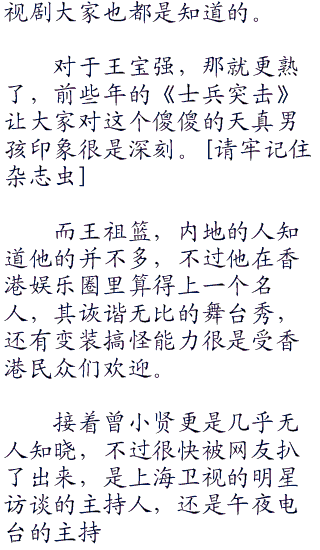 视剧大家也都是知道的。
对于王宝强，那就更熟
了，前些年的《士兵突击》
让大家对这个傻傻的天真男
孩印象很是深刻。[请牢记住
杂志虫]
而王祖篮，内地的人知
道他的并不多，不过他在香
港娱乐圈里算得上一个名
人，其诙谐无比的舞台秀，
还有变装搞怪能力很是受香
港民众们欢迎。
接着曾小贤更是几乎无
人知晓，不过很快被网友扒
了出来，是上海卫视的明星
访谈的主持人，还是午夜电
台的主持